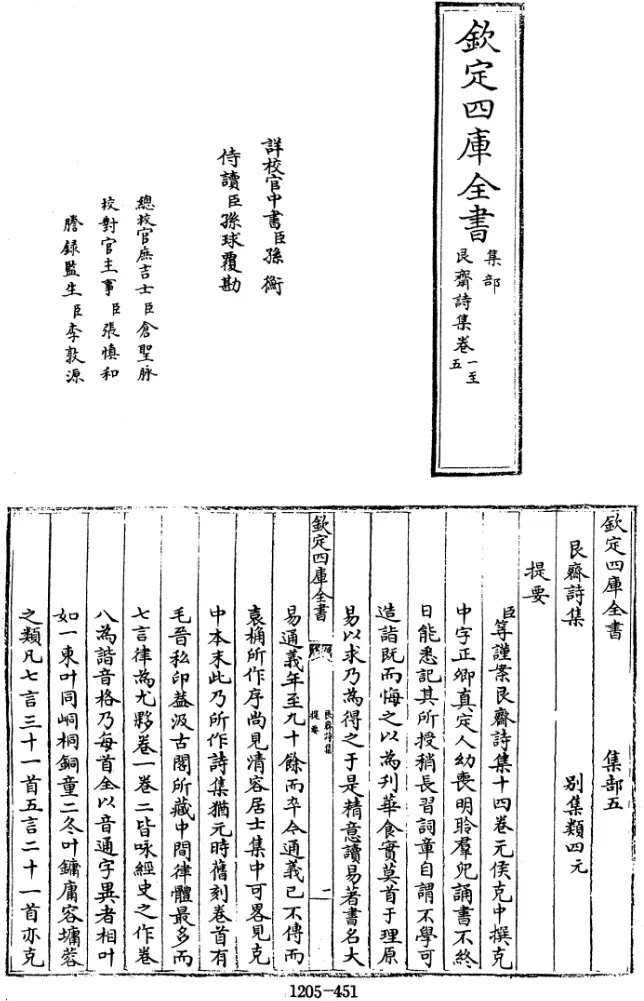 欽定四庫全書
集部
艮齋詩集卷一至五
詳校官中書臣孫衡
侍讀臣孫球覆勘
總校官庶吉士臣倉聖脉
校對官主事臣張慎和
謄錄監生臣李敦源
欽定四庫全書 集部五
艮齋詩集 别集類四元
提要
臣等謹案艮齋詩集十四卷元侯克中撰克
中字正卿真定人幼喪明聆羣兒誦書不終
日能悉記其所授稍長習詞章自謂不學可
造詣既而悔之以為刋華食實莫首于理原
易以求乃為得之于是精意讀易著書名大
欽定四庫全書
艮齋詩集
提要
一
易通義年至九十餘而卒今通義已不傳而
袁桷所作序尚見清容居士集中可畧見克
中本末此乃所作詩集猶元時舊刻卷首有
毛晉私印葢汲古閣所藏中間律體最多而
七言律為尤夥卷一卷二皆咏經史之作卷
八為諧音格乃每首全以音通字異者相叶
如一東叶同峒桐銅童二冬叶鏞庸容墉蓉
之類凡七言三十一首五言二十一首亦克
1205-451